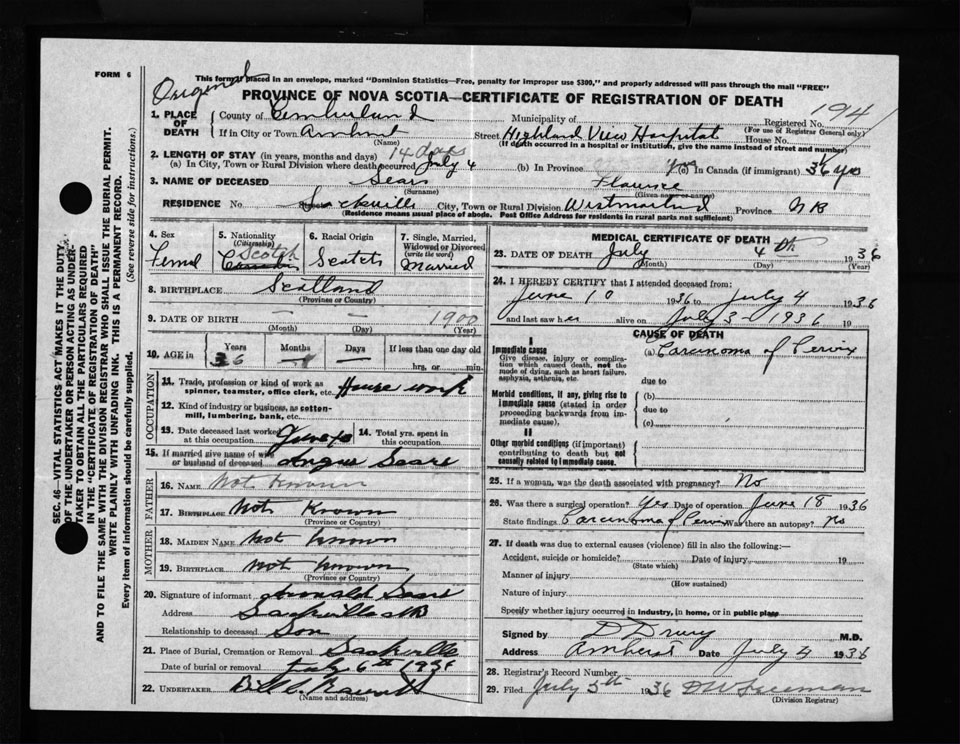 FORM 6
This form if placed in an envelope, marked "Dominion Statistics—Free, penalty for improper use $300," and properly addressed will pass through the mail "FREE"
Original
PROVINCE OF NOVA SCOTIA—CERTIFICATE OF REGISTRATION OF DEATH
194
1. PLACE OF DEATH County of Cumberland Municipality of Registered No.
(For use of Registrar General only)
If in City or Town Amherst Street Highland View Hospital House No.
(Name) (If death occurred in a hospital or institution, give the name instead of street and number)
2. LENGTH OF STAY (in years, months and days) 14 days
(a) In City, Town or Rural Division where death occurred July 4 (b) In Province (c) In Canada (if immigrant) 36 yrs
3. NAME OF DECEASED Sears
(Surname) (Given name or names)
RESIDENCE No. Sackville City, Town or Rural Division Westmorland Province NB
(Residence means usual place of abode. Post Office Address for residents in rural parts not sufficient)
4. Sex 5. Nationality (Citizenship) 6. Racial Origin 7. Single, Married, Widowed or Divorced (write the word)
Scotch
Femal Scotch Married
8. BIRTHPLACE Scotland
(Province or Country)
9. DATE OF BIRTH — — 1900
(Month) (Day) (Year)
10. AGE in Years Months Days If less than one day old
36 hrs. or min.
OCCUPATION
11. Trade, profession or kind of work as spinner, teamster, office clerk, etc. House work
12. Kind of industry or business, as cotton-mill, lumbering, bank, etc.
13. Date deceased last worked at this occupation 14. Total yrs. spent in this occupation
15. If married give name of wife or husband of deceased Angus Sears
FATHER
16. NAME Not Known
17. BIRTHPLACE Not Known
(Province or Country)
MOTHER
18. MAIDEN NAME Not Known
19. BIRTHPLACE Not Known
(Province or Country)
20. Signature of informant
Address Sackville NB
Relationship to deceased Son
21. Place of Burial, Cremation or Removal Sackville
Date of burial or removal July 6th 1936
22. UNDERTAKER
(Name and address)
MEDICAL CERTIFICATE OF DEATH
23. DATE OF DEATH July 4th 1936
(Month) (Day) (Year)
24. I HEREBY CERTIFY that I attended deceased from:
June 10 1936 to July 4 1936
and last saw her alive on July 3 - 1936 19
CAUSE OF DEATH
I
Immediate cause (a) Carcinoma of Cervix
Give disease, injury or complication which caused death, not the mode of dying, such as heart failure, asphyxia, asthenia, etc.
due to
Morbid conditions, if any, giving rise to immediate cause (stated in order proceeding backwards from immediate cause).
(b)
due to
(c)
II
Other morbid conditions (if important) contributing to death but not causally related to immediate cause.
25. If a woman, was the death associated with pregnancy? No
26. Was there a surgical operation? Yes Date of operation June 18 1936
State findings Carcinoma of Cervix Was there an autopsy? No
27. If death was due to external causes (violence) fill in also the following:—
Accident, suicide or homicide? Date of injury 19
(State which)
Manner of injury
(How sustained)
Nature of injury
Specify whether injury occurred in industry, in home, or in public place
Signed by D Drury M.D.
Address Amherst Date July 4 1936
28. Registrar's Record Number
29. Filed July 5th 1936
(Division Registrar)
SEC. 46—VITAL STATISTICS ACT MAKES IT THE DUTY
OF THE UNDERTAKER OR PERSON ACTING AS UNDER-
TAKER TO OBTAIN ALL THE PARTICULARS REQUIRED
IN THE "CERTIFICATE OF REGISTRATION OF DEATH"
AND TO FILE THE SAME WITH THE DIVISION REGISTRAR WHO SHALL ISSUE THE BURIAL PERMIT.
WRITE PLAINLY WITH UNFADING INK. THIS IS A PERMANENT RECORD.
Every item of information should be carefully supplied. (See reverse side for instructions.)